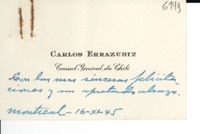 6949
CARLOS ERRAZURIZ
Consul General de Chile
Con las mas sinceras felicita
ciones y un apretado abrazo.
Montreal - 16-XI-45